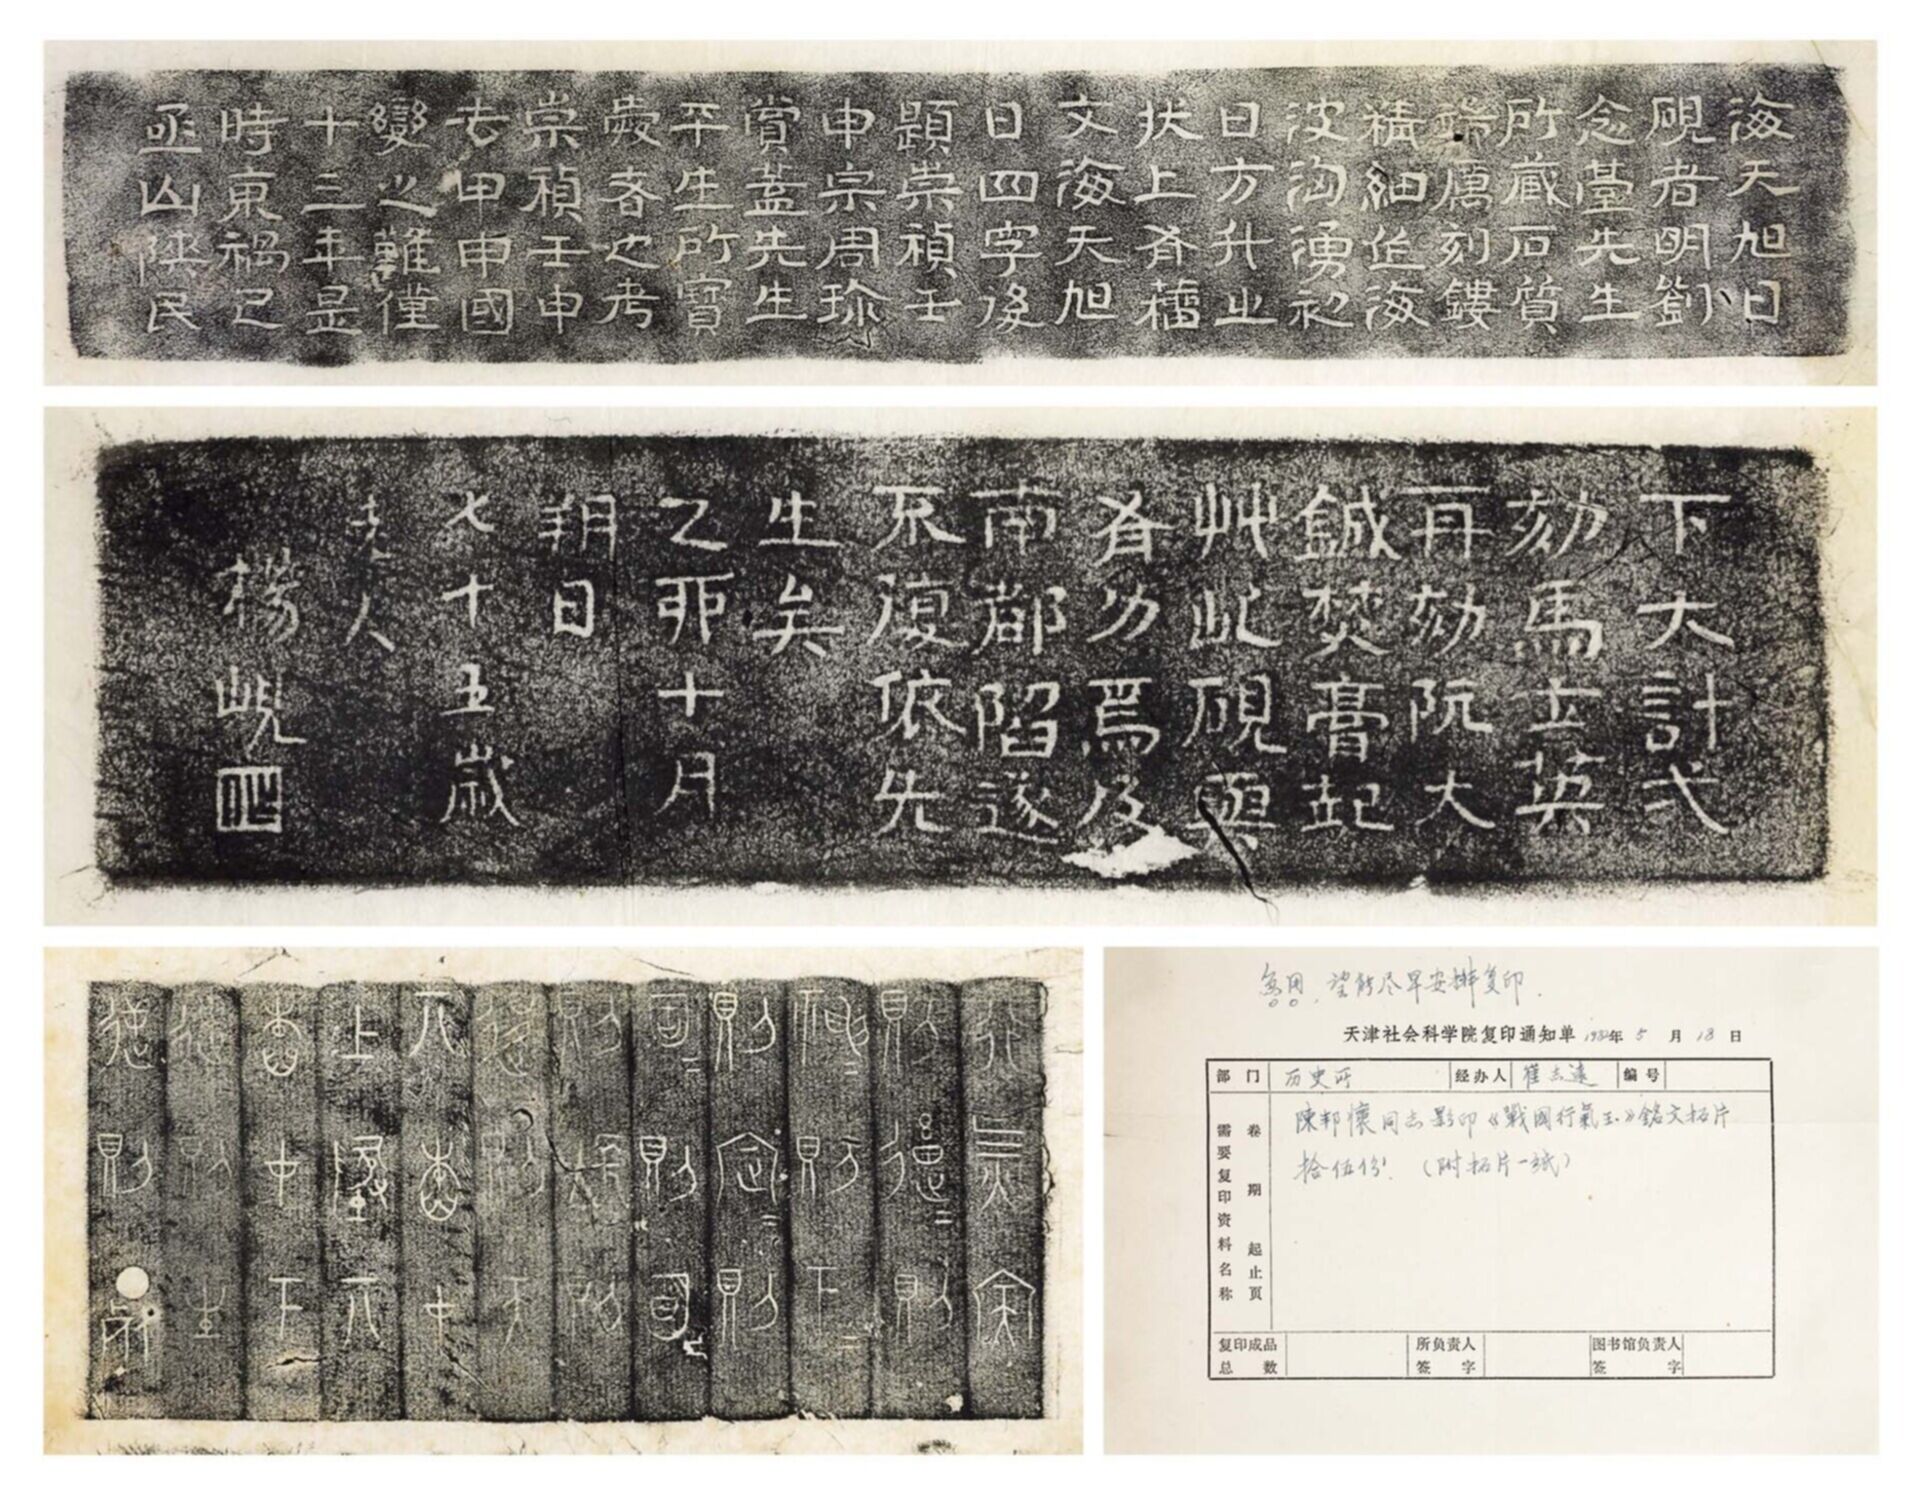 海天旭日
硯者明劉
念臺先生
所藏石質
端厲刻鏤
精細作海
波洶湧初
日方升之
狀上有籀
文海天旭
日四字後
題崇禎壬
申宗周珍
賞蓋先生
平生所寶
愛者也考
崇禎壬申
去甲申國
變之難僅
十三年是
時東禍已
亟凶陝民
下大計弍
劾馬士英
再劾阮大
鋮焚膏起
艸此硯與
有力焉及
南都陷遂
不復依先
生矣
乙卯十月
朔日
七十五歲
老人
楊峴
行氣
則則
神=則下=
則定=則
則
則則
則天
丌本中
上丌
本中下
則生
則死
急用,望能尽早安排复印.
天津社会科学院复印通知单 1982年 5 月 18 日
部门 历史所 经办人 崔志远 编号
需要复印资料名称
卷期起止页
陳邦懷同志影印《戰國行氣玉》銘文拓片
拾伍份.(附拓片一纸)
复印成品总数 所负责人签字 图书馆负责人签字